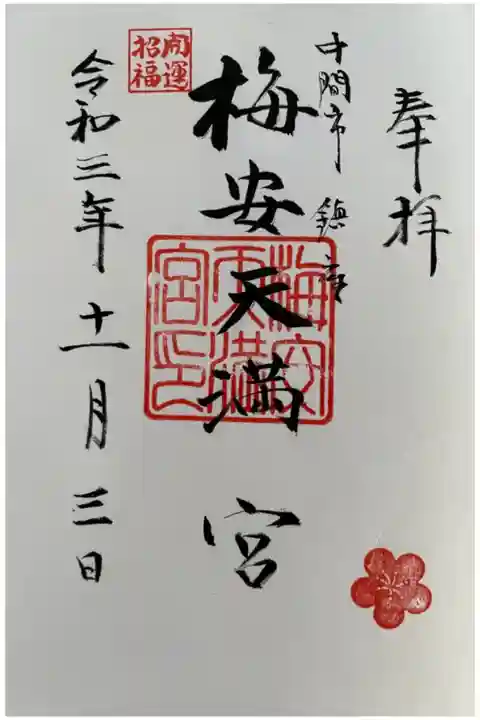 奉拝
中間市 鎮守
梅安天満宮
梅安天満宮印
開運招福
令和三年十一月三日